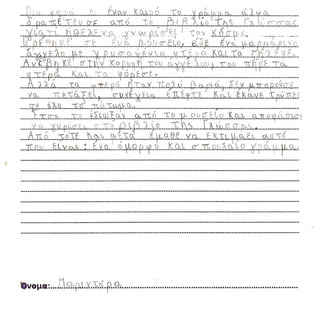 Μια φορά κι έναν καιρό το γράμμα άλφα
δραπέτευσε από το βιβλίο της Γλώσσας
γιατί ήθελε να γνωρίσει τον κόσμο.
Βρέθηκε σε ένα μουσείο, είδε ένα μαρμάρινο
άγγελο με χρυσαφένια φτερά και τα ζήλεψε.
Ανέβηκε στην κορυφή του αγγέλου του πήρε τα
φτερά και τα φόρεσε.
Αλλά τα φτερά ήταν πολύ βαριά, δεν μπορούσε
να πετάξει, συνέχεια έπεφτε και έκανε τρύπες
σε όλο το πάτωμα.
Έτσι το έδιωξαν από το μουσείο και αποφάσισε
να γυρίσει στο βιβλίο της Γλώσσας.
Από τότε και μετά έμαθε να εκτιμάει αυτό
που είναι: ένα όμορφο και σπουδαίο γράμμα.
Όνομα: